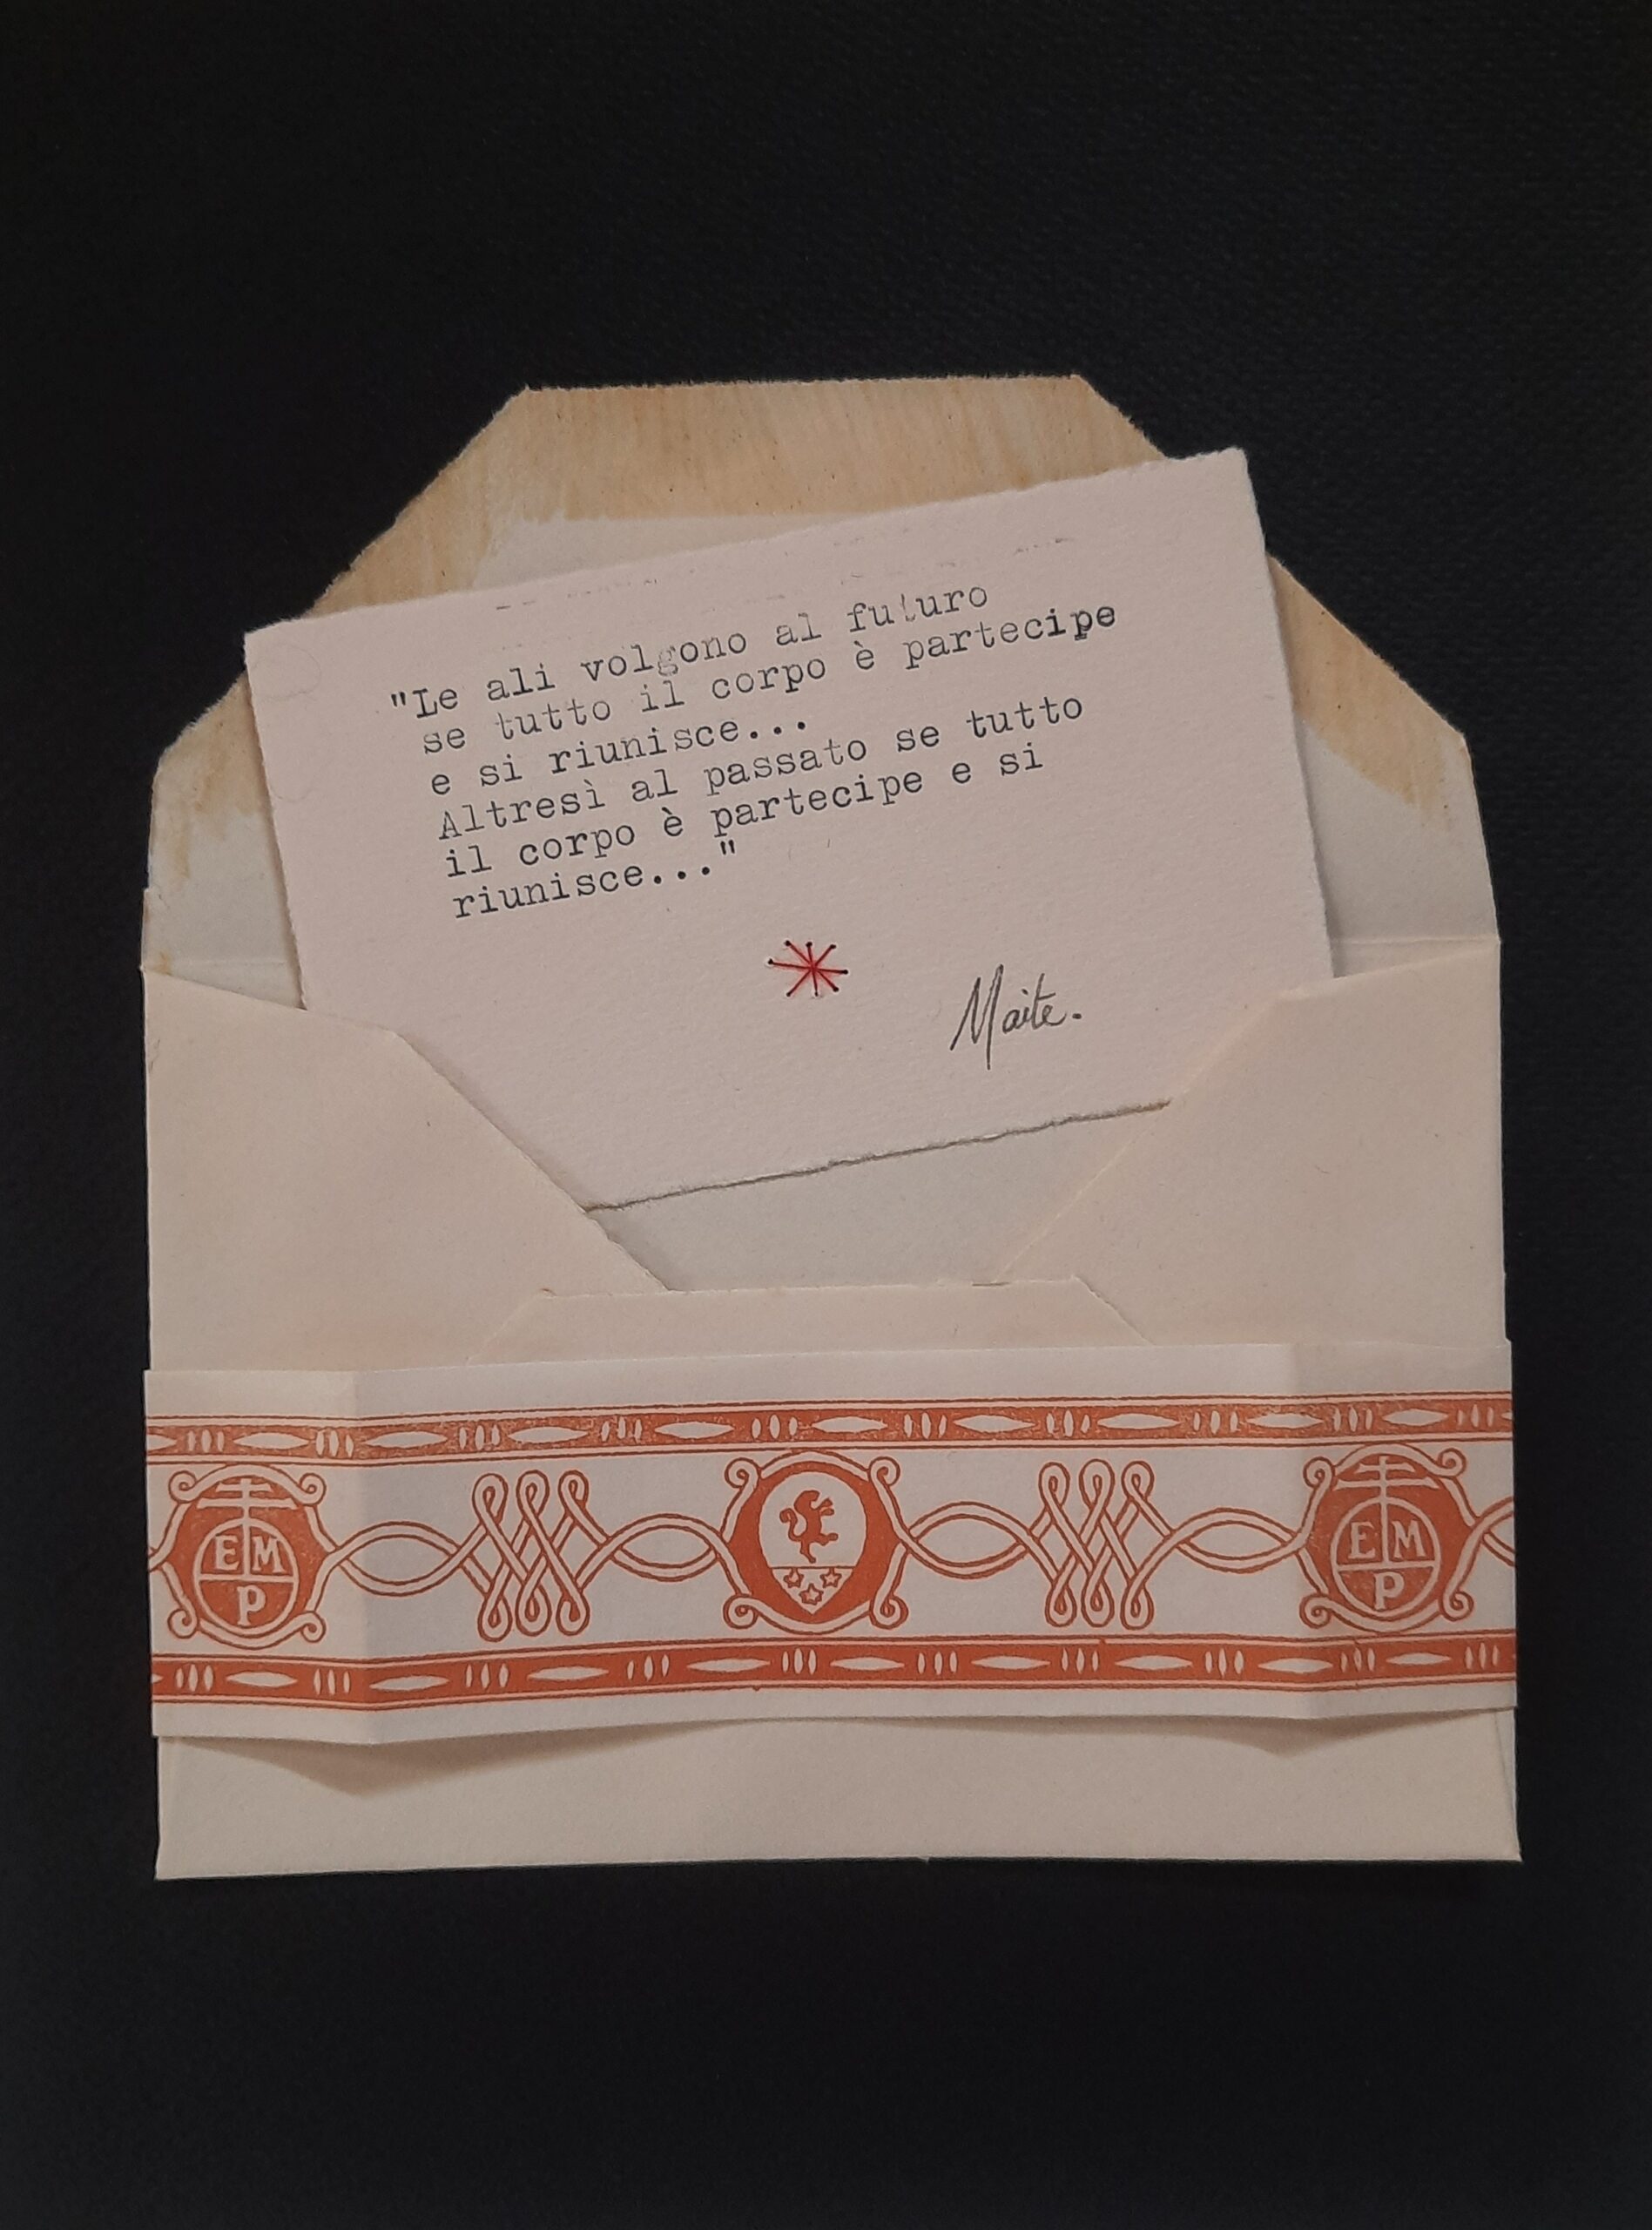 "Le ali volgono al futuro
se tutto il corpo è partecipe
e si riunisce...
Altresì al passato se tutto
il corpo è partecipe e si
riunisce..."
Maite.
EM
P
EM
P